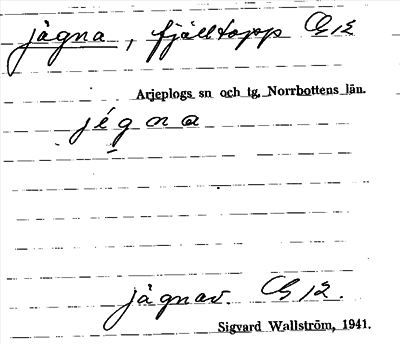 jågna, fjälltopp G 12
Arjeplogs sn och tg. Norrbottens län.
jégna
jågnav. G 12.
Sigvard Wallström, 1941.